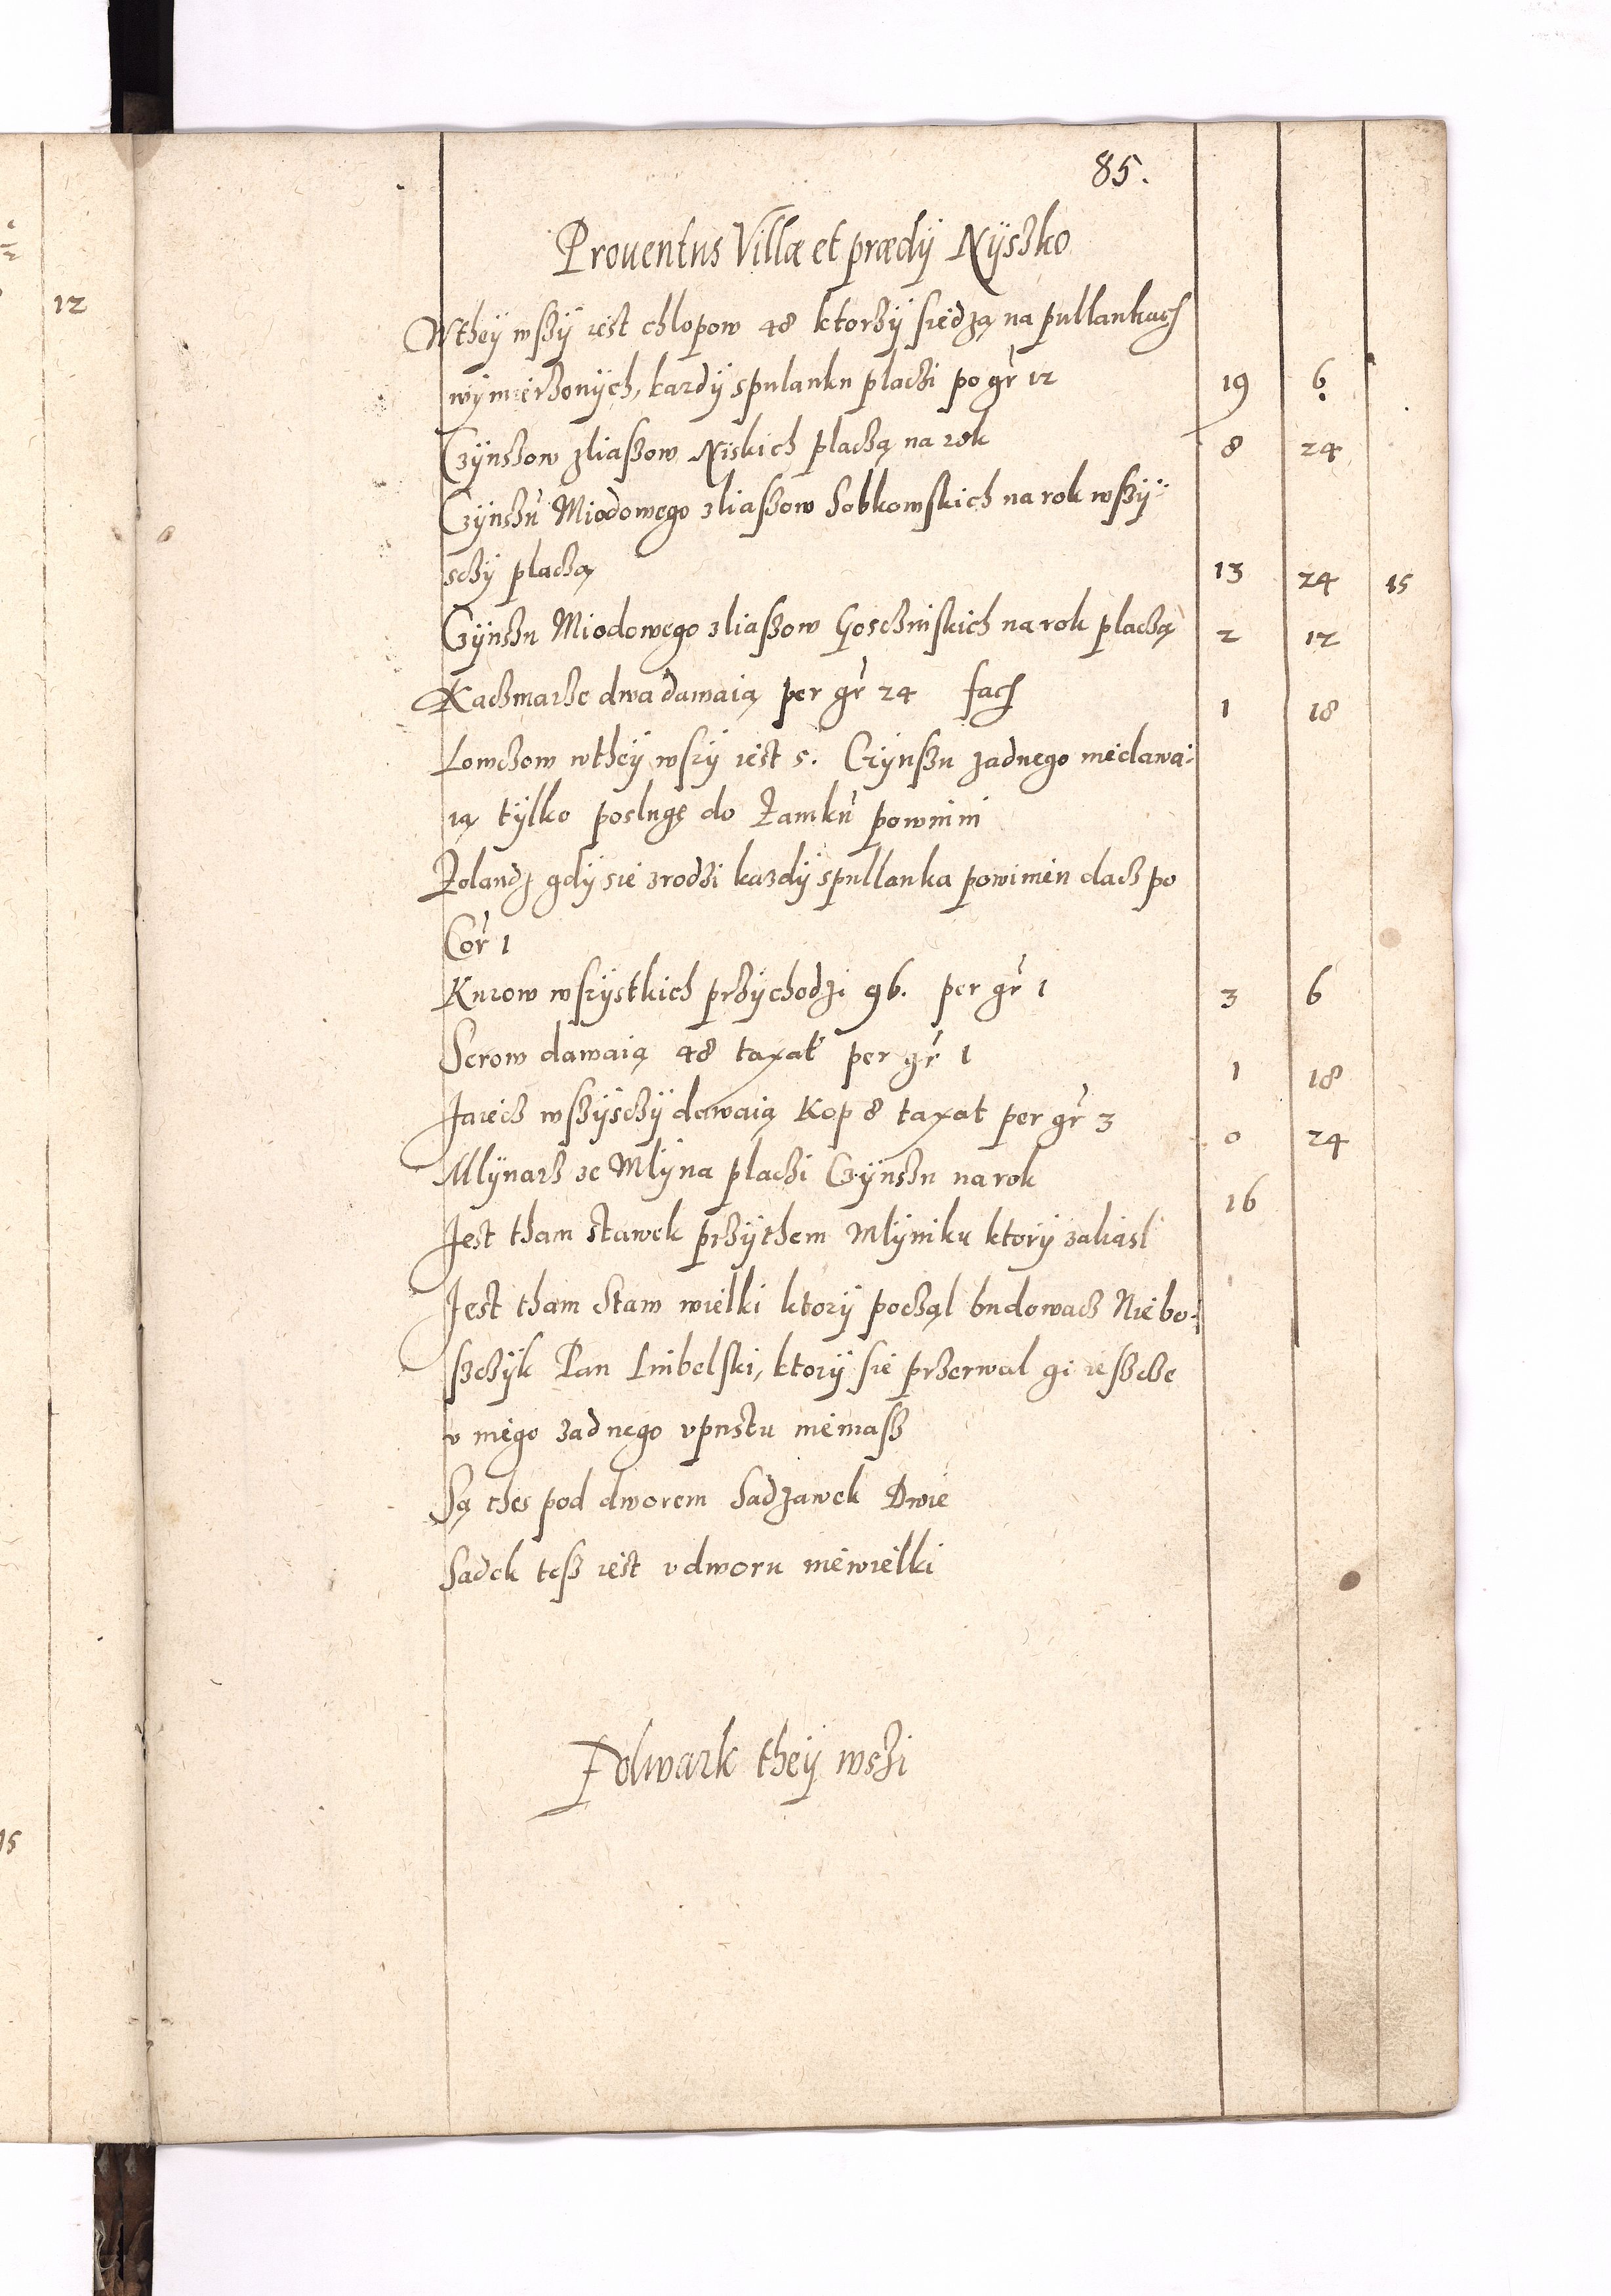 85.
Prouentus Villæ et prædÿ Nÿszko
Wtheÿ wszÿ iest chlopow 48 ktorzÿ siedzą na pullankach
wÿmierzonÿch, kazdÿ spulanku placzi po gr 12 19 6
Czÿnszow zliaszow Niskich placzą na rok 8 24
Czÿnszu Miodowego zliaszow Sobkowskich na rok wszÿ-
sczÿ placzą 13 24 15
Czÿnszu Miodowego zliaszow Goszczinskich na rok placzą 2 12
Kaczmarze dwa dawaią per gr 24 fach 1 18
Lowczow wtheÿ wszÿ iest 5. Czÿnszu zadnego niedawa-
ią tÿlko poslugę do Zamku powinni
Zolandz gdÿ sie zrodzi kazdÿ spullanka powinien dacz po
Cor 1
Kurow wszÿstkich przÿchodzi 96. per gr 1 3 6
Serow dawaią 48 taxat per gr 1 1 18
Jaiecz wszÿsczÿ dawaią Kop 8 taxat per gr 3 0 24
Mlÿnarz ze Mlÿna placzi Czÿnszu na rok 16
Jest tham stawek przÿthem Mlÿniku ktorÿ zaliasl
Jest tham Staw wielki ktorÿ począl budowacz Niebo-
szczÿk Pan Lubelski, ktorÿ sie przerwal gi ieszcze
v niego zadnego vpustu niemasz
Są thes pod dworem Sadzawek Dwie
Sadek tesz iest vdworu niewielki
Folwark theÿ wszi
12
15